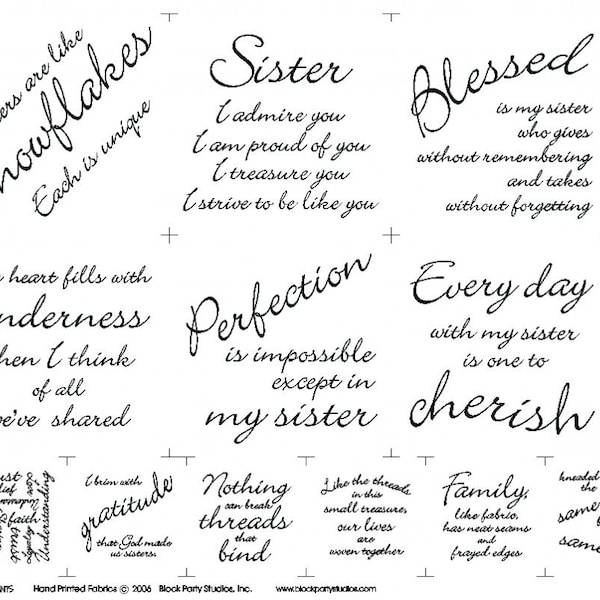 ers are like
nowflakes
Each is unique
Sister
I admire you
I am proud of you
I treasure you
I strive to be like you
Blessed
is my sister
who gives
without remembering
and takes
without forgetting
heart fills with
nderness
hen I think
of all
we've shared
Perfection
is impossible
except in
my sister
Every day
with my sister
is one to
cherish
faith
trust
Understanding
I brim with
gratitude
that God made
us sisters.
Nothing
can break
threads
that
bind
Like the threads
in this
small treasure,
our lives
are
woven together
Family,
like fabric,
has neat seams
and
frayed edges
kneaded
the
same
same
NTS Hand Printed Fabrics © 2006 Block Party Studios, Inc. www.blockpartystudios.com